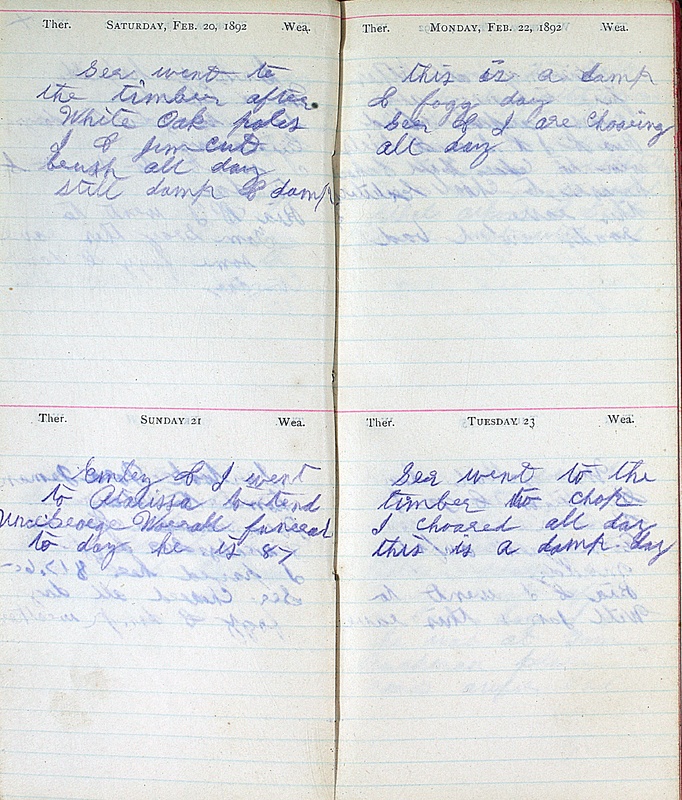 Ther. SATURDAY, FEB. 20, 1892 Wea.
Geo went to
the timber after
White Oak poles
I & Jim cut
brush all day
still damp & damp
Ther. SUNDAY 21 Wea.
& I went
to Atalissa to tend
Uncl George Worall funeral
to day he is 87
Ther. MONDAY, FEB. 22, 1892 Wea.
this is a damp
& fogy day
Geo & I are Choaring
all day
Ther. TUESDAY 23 Wea.
Geo went to the
timber to chop
I choared all day
this is a damp day